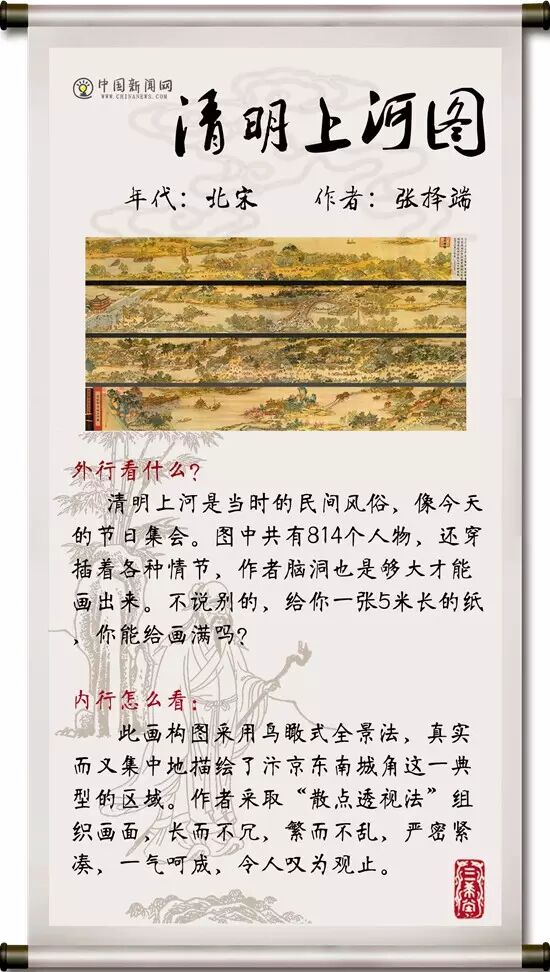 中国新闻网
WWW.CHINANEWS.COM
清明上河图
年代：北宋 作者：张择端
外行看什么？
清明上河是当时的民间风俗，像今天
的节日集会。图中共有814个人物，还穿
插着各种情节，作者脑洞也是够大才能
画出来。不说别的，给你一张5米长的纸
，你能给画满吗？
内行怎么看：
此画构图采用鸟瞰式全景法，真实
而又集中地描绘了汴京东南城角这一典
型的区域。作者采取“散点透视法”组
织画面，长而不冗，繁而不乱，严密紧
凑，一气呵成，令人叹为观止。
三希堂